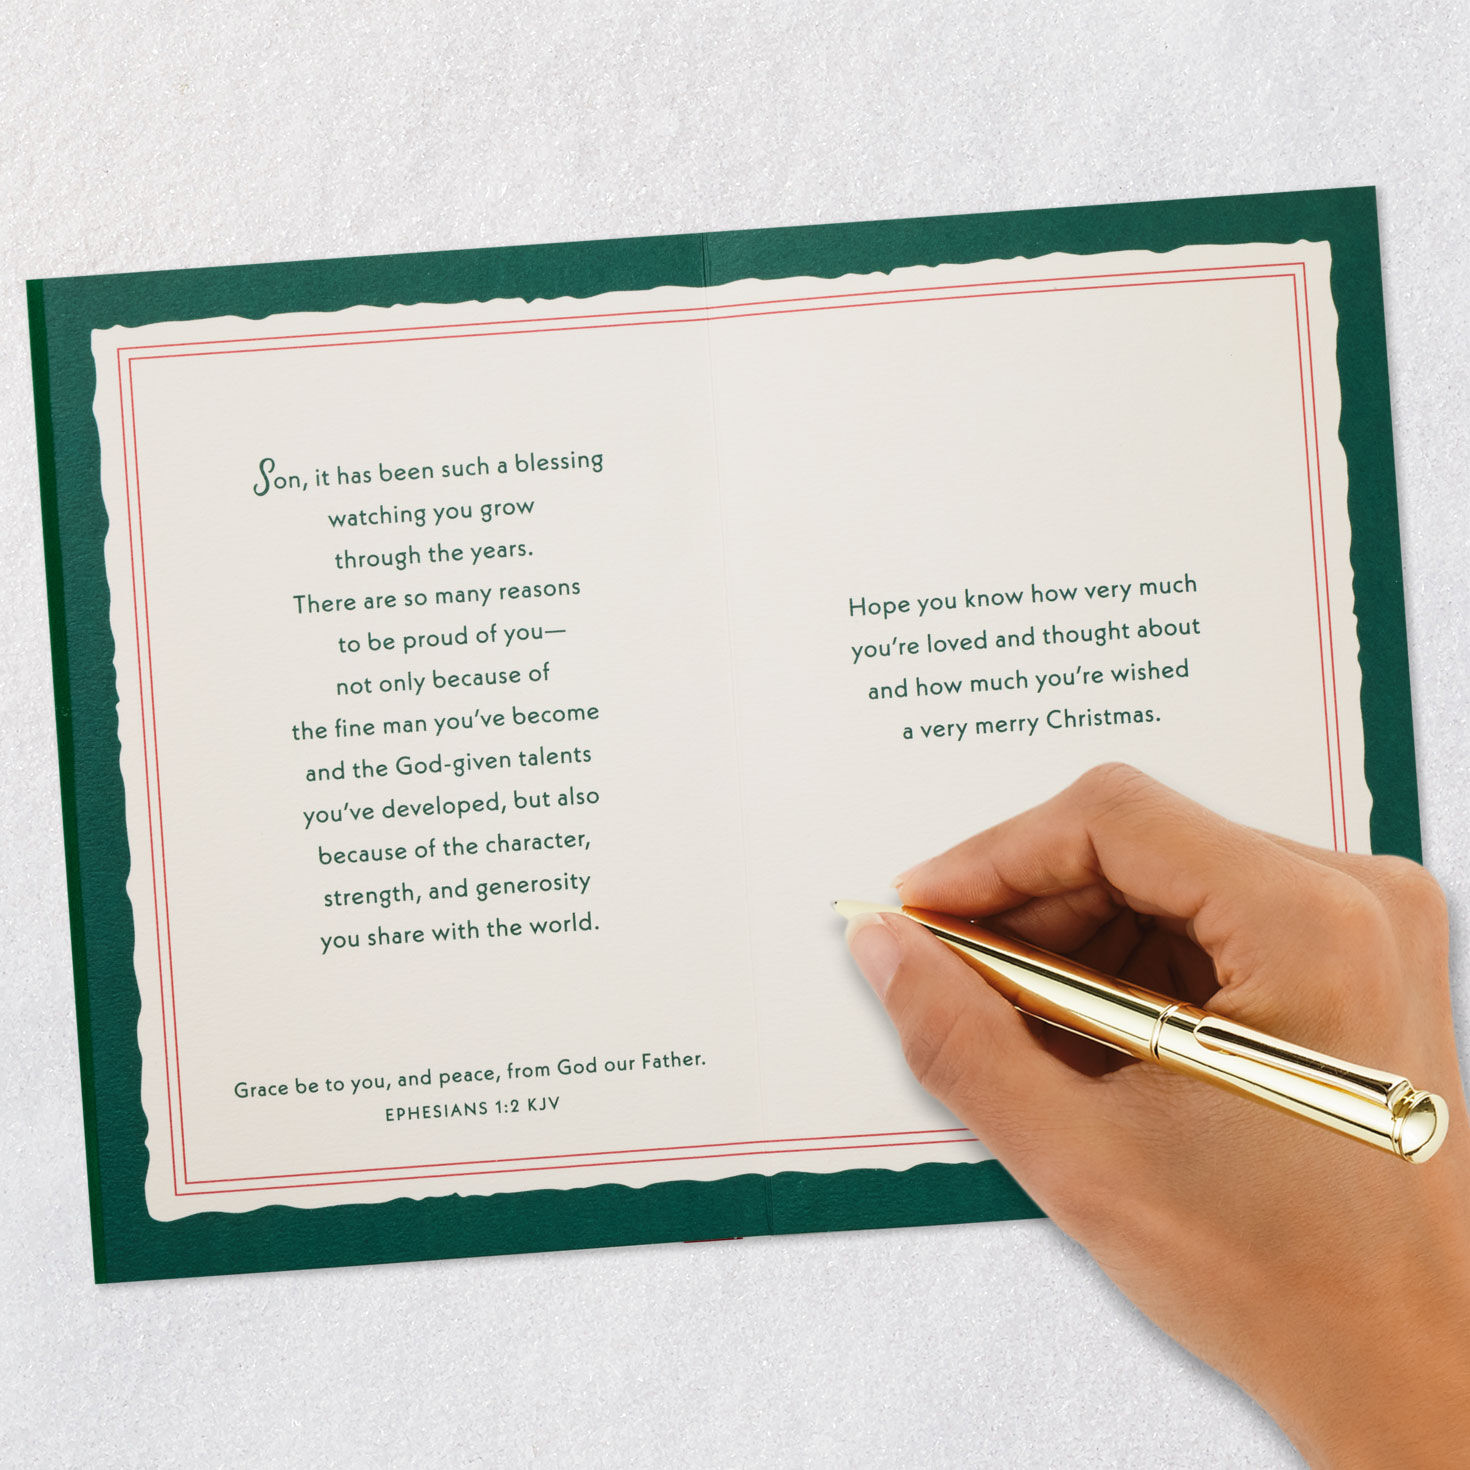 Son, it has been such a blessing
watching you grow
through the years.
There are so many reasons
to be proud of you—
not only because of
the fine man you've become
and the God-given talents
you've developed, but also
because of the character,
strength, and generosity
you share with the world.
Grace be to you, and peace, from God our Father.
EPHESIANS 1:2 KJV
Hope you know how very much
you're loved and thought about
and how much you're wished
a very merry Christmas.